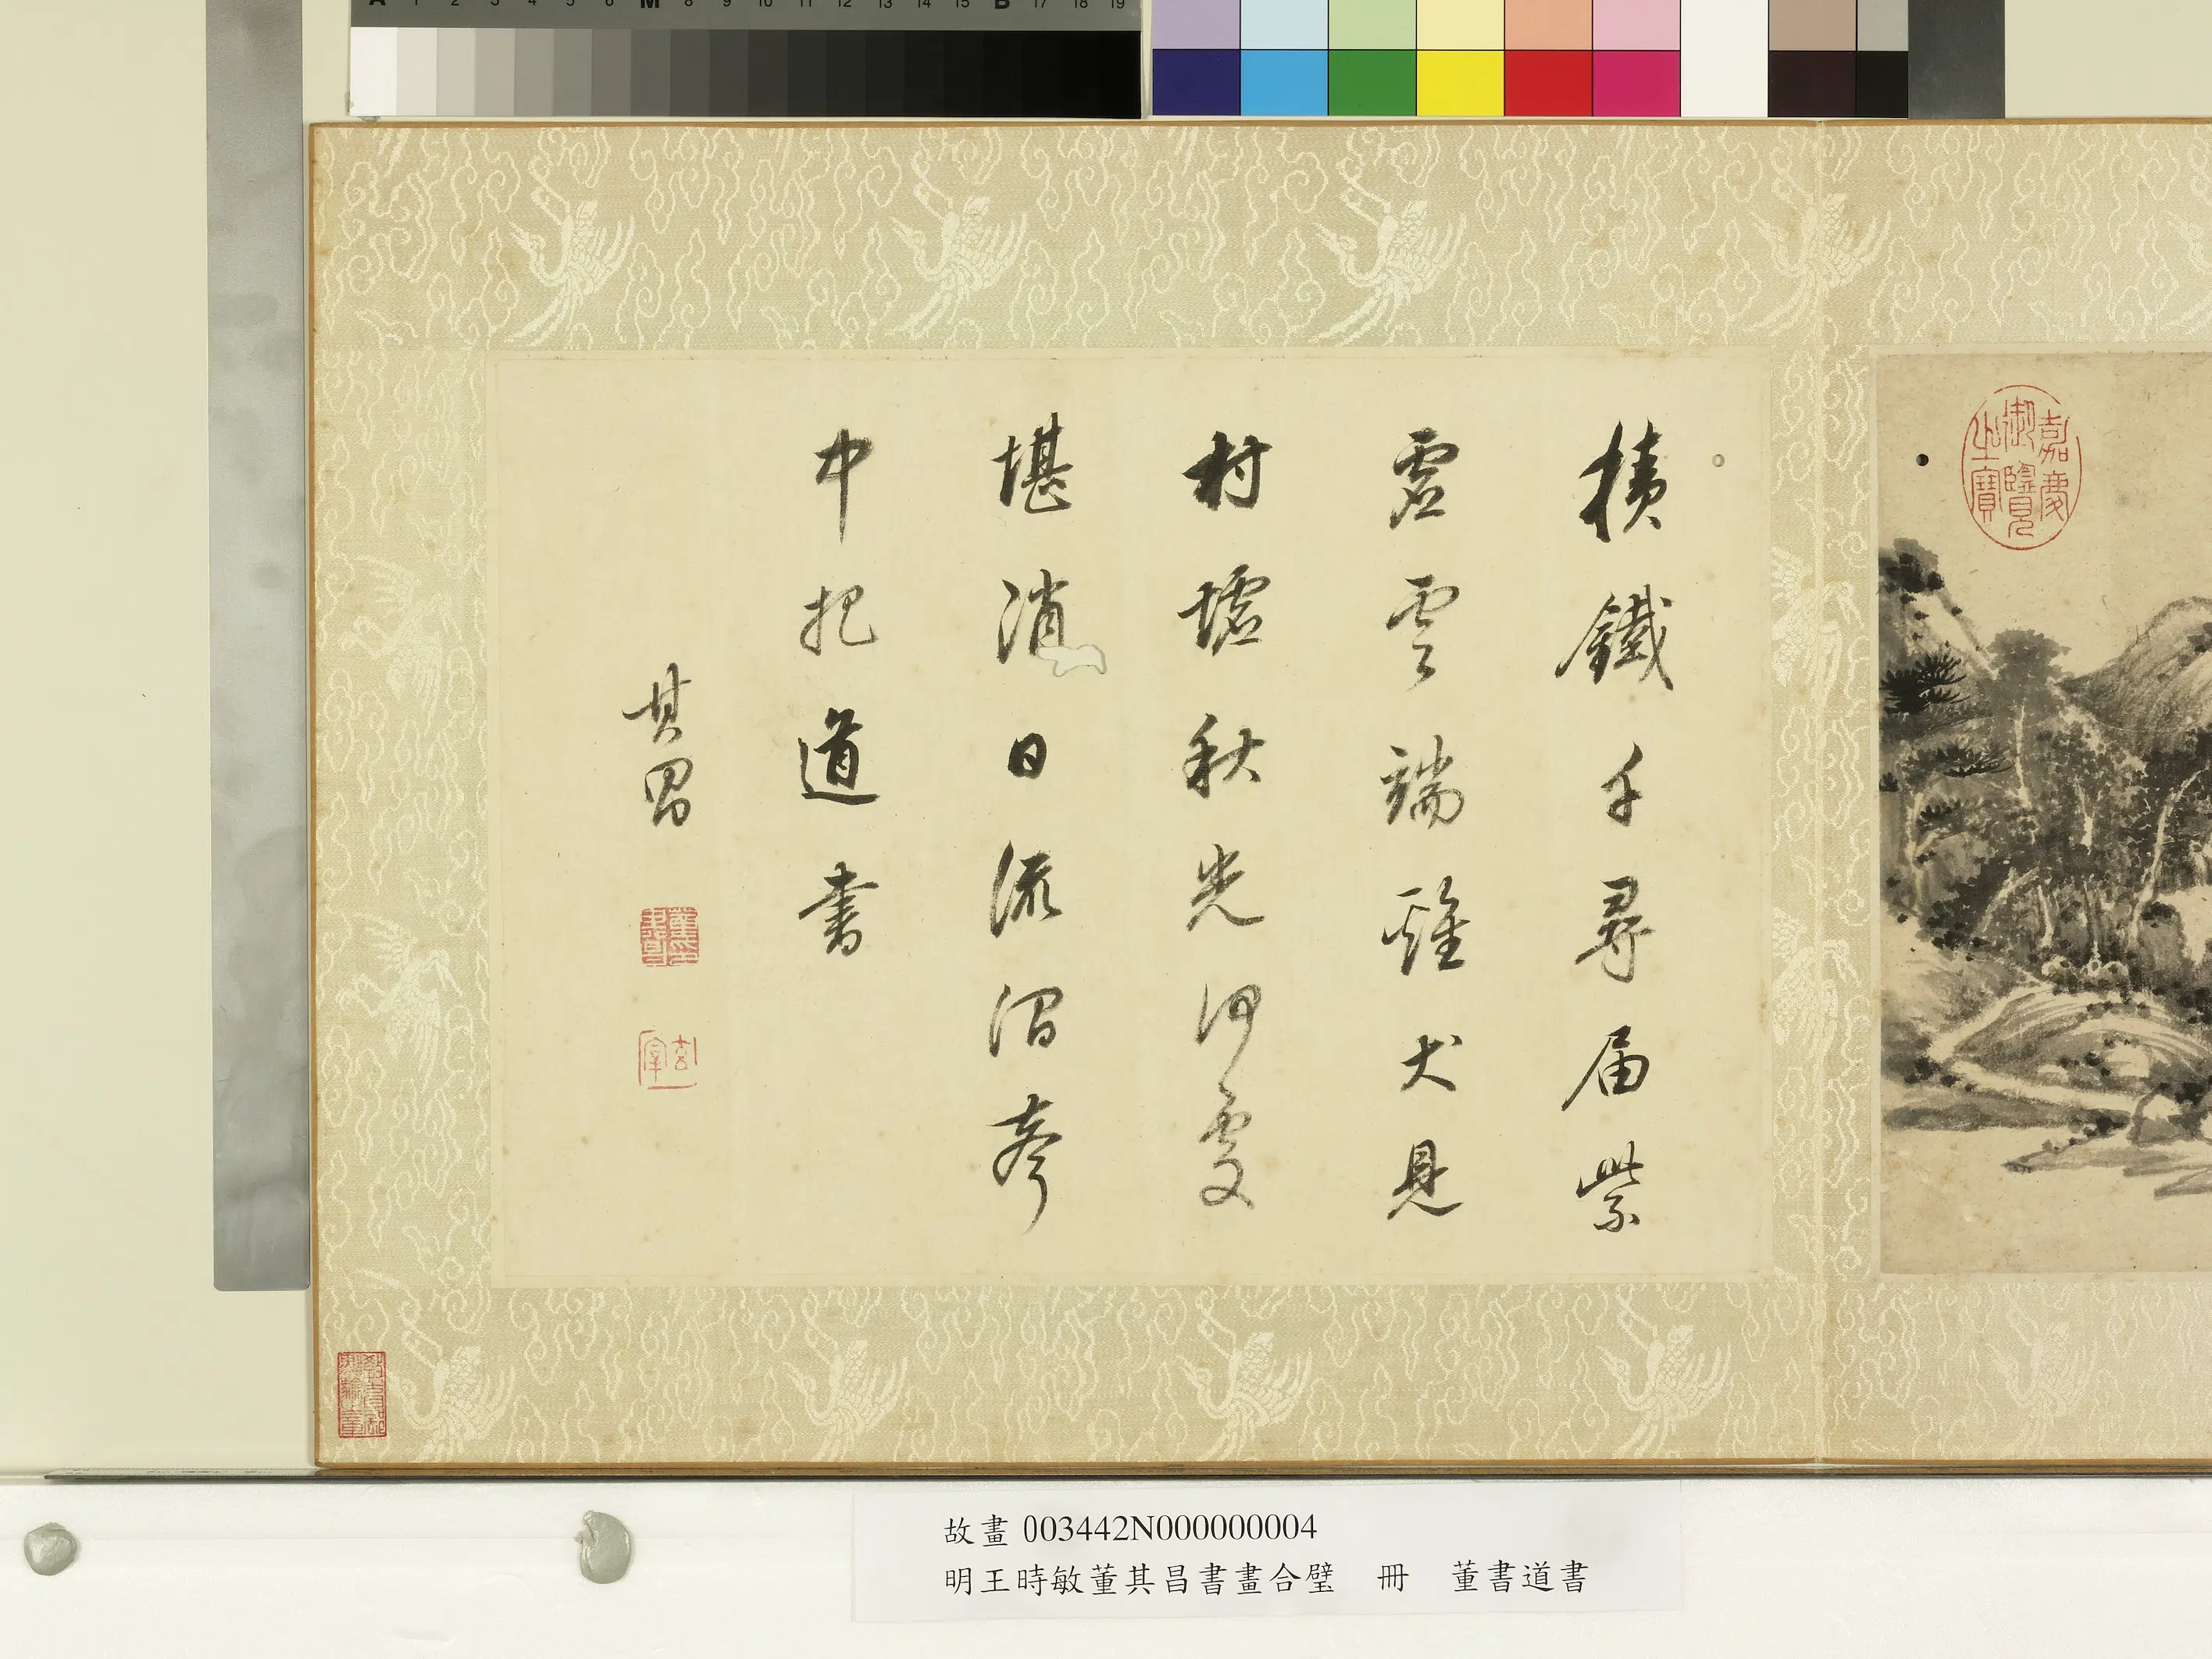 A 1 2 3 4 5 6 M 8 9 10 11 12 13 14 15 B 17 18 19
嘉慶
御覽
之寶
積鐵千尋届紫
虛雲端雞犬見
村墟秋光何處
堪消日流澗聲
中把道書
其昌
玄宰
故畫 003442N000000004
明王時敏董其昌書畫合璧 冊 董書道書